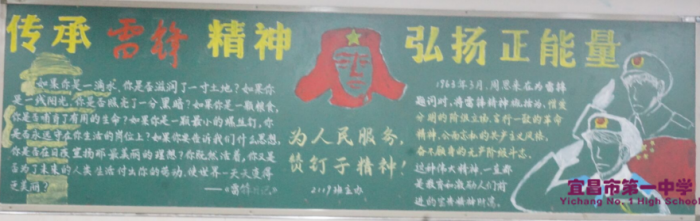 传承雷锋精神 弘扬正能量
如果你是一滴水，你是否滋润了一寸土地？如果你
是一线阳光，你是否照亮了一分黑暗？如果你是一颗粮食，
你是否哺育了有用的生命？如果你是一颗最小的螺丝钉，你
是否永远守在你生活的岗位上？如果你要告诉我们什么思想，
你是否在日夜宣扬那最美丽的理想？你既然活着，你又是
否为了未来的人类生活付出你的劳动，使世界一天天变得
更美丽？
——《雷锋日记》
为人民服务，
赞钉子精神！
1963年3月，周恩来在为雷锋
题词时，将雷锋精神概括为：憎爱
分明的阶级立场、言行一致的革命
精神、公而忘私的共产主义风格、
奋不顾身的无产阶级斗志。
这种伟大精神，一直都
是教育和激励人们前
进的宝贵精神财富。
宜昌市第一中学
Yichang No. 1 High School